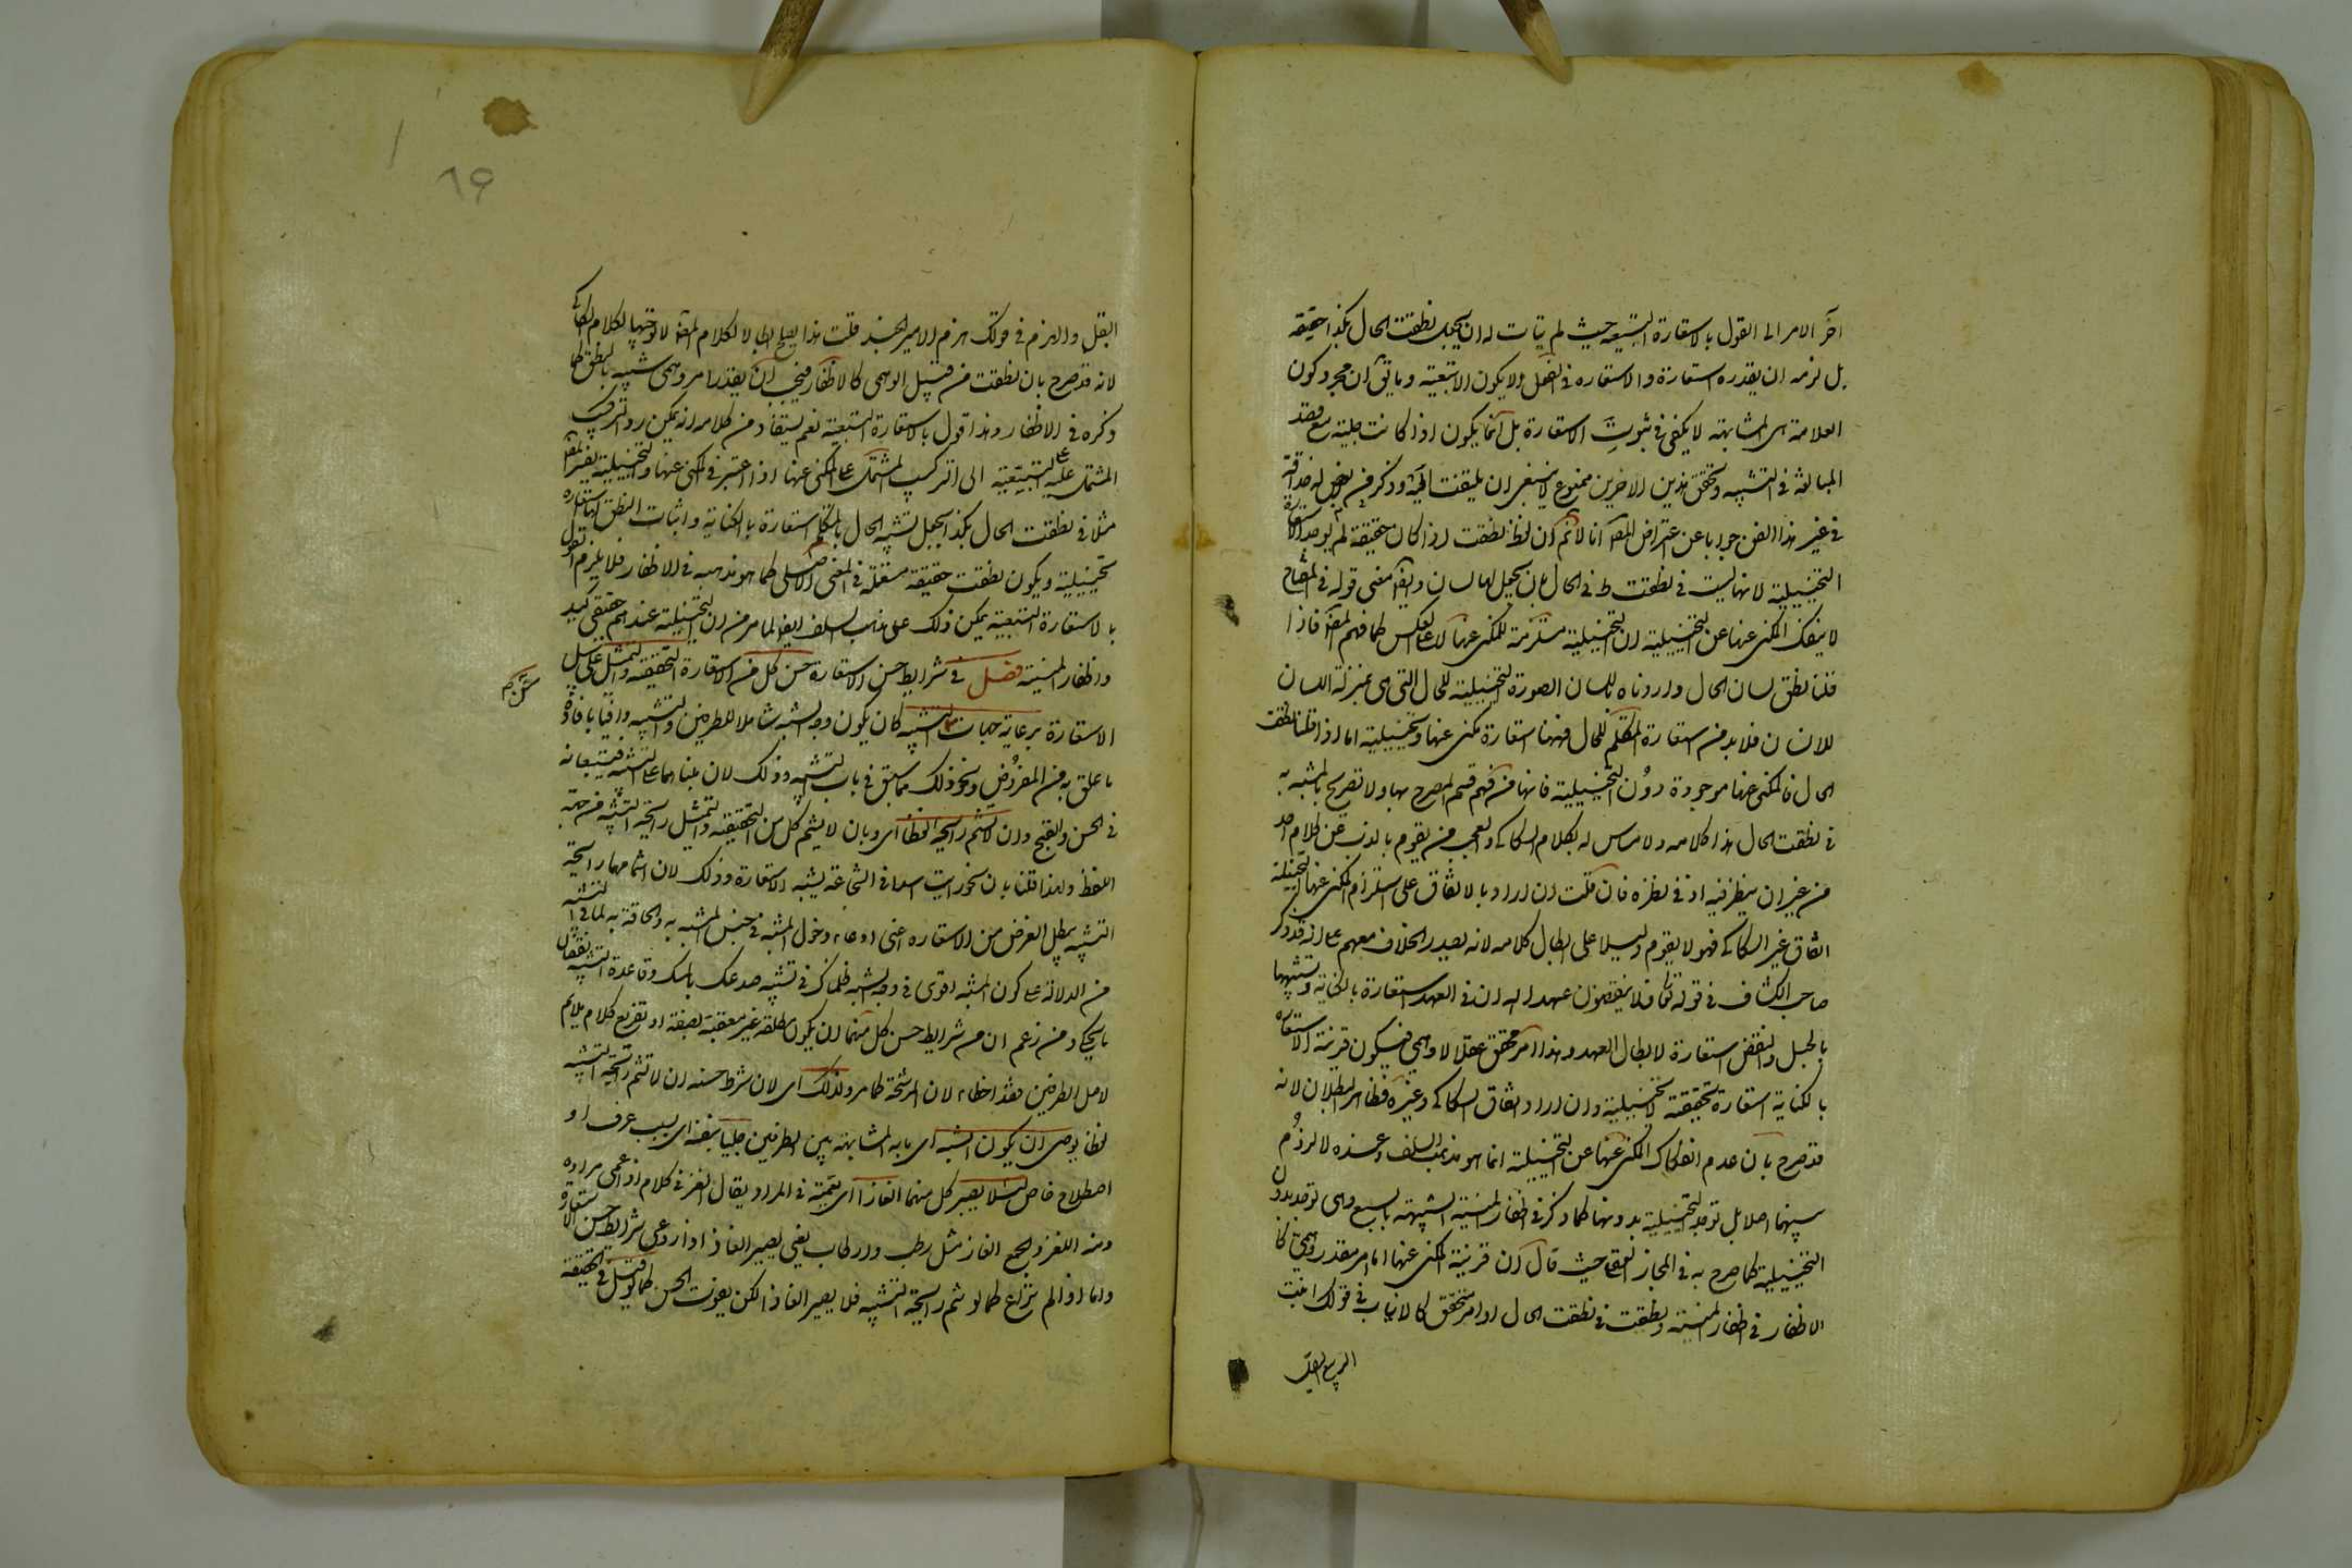 آخر الامر الى القول بالاستعارة التبعية حيث لم يتأت له ان يجعل نطقت الحال بكذا حقيقة
بل لزمه ان يقدره استعارة والاستعارة في الفعل لا يكون الا تبعية وما يق ان مجرد كون
العلاقة هي المشابهة لا يكفي في ثبوت الاستعارة بل انما يكون اذا كانت جلية مع قصد
المبالغة في التشبيه وتحقق هذين الاخرين ممنوع لا ينبغي ان يلتفت اليه وذكر من له حذاقة
في غير هذا الفن جوابا عن اعتراض المص انا لا نم ان لفظ نطقت اذا كان حقيقة لم يوجد الاستعارة
التخييلية لانها ليست في نطقت بل في الحال بان يجعل لها لسان وايضا معنى قوله في المفتاح
لا ينفك المكنى عنها عن التخييلية ان التخييلية مستلزمة للمكنى عنها لا على العكس كما فهم المص فاذا
قلنا نطق لسان الحال واردناه باللسان الصورة التخييلية للحال التي هي بمنزلة اللسان
للانسان فلا بد من استعارة المتكلم للحال فههنا استعارة مكنى عنها وتخييلية اما اذا قلنا نطقت
الحال فالمكنى عنها موجودة دون التخييلية فانها من قسم المصرح بها ولا تصريح بالمشبه به
في نطقت الحال هذا كلامه ولا مساس له بكلام السكاكي والعجب ممن يقوم بالذب عن كلام احد
من غير ان ينظر فيه او في نظره فان قلت ان اراد بالاتفاق على استلزام المكنى عنها للتخييلية
اتفاق غير السكاكي فهو لا يقوم دليلا على ابطال كلامه لانه بصدد الخلاف معهم على انه قد ذكر
صاحب الكشاف في قوله تعالى ينقضون عهد الله ان في العهد استعارة بالكناية وتشبيها
بالحبل والنقض استعارة لابطال العهد وهذا امر محقق عقلا لا وهمي فيكون قرينة الاستعارة
بالكناية استعارة تحقيقية لا تخييلية وان اراد اتفاق السكاكي وغيره فظاهر البطلان لانه
قد صرح بان عدم انفكاك المكنى عنها عن التخييلية انما هو مذهب السلف وعنده لا لزوم
بينهما اصلا بل توجد التخييلية بدونها كما ذكر في اظفار المنية الشبيهة بالسبع وهي توجد بدون
التخييلية كما صرح به في المجاز العقلي حيث قال ان قرينة المكنى عنها اما امر مقدر وهمي كا
لاظفار في اظفار المنية ونطقت في نطقت الحال او امر محقق كالانبات في قولك انبت
الربيع البقل
٦٩
البقل والهزم في قولك هزم الامير الجند قلت هذا يصلح ابطالا لكلام المص لا توجيها لكلام السكاكي
لانه قد صرح بان نطقت من قبيل الوهمي كالاظفار فيجب ان يقدر امر وهمي شبيه بالنطق كما
ذكره في الاظفار وهذا قول بالاستعارة التبعية نعم يستفاد من كلامه انه يمكن رد التركيب
المشتمل على التبعية الى التركيب المشتمل على المكنى عنها اذا اعتبر في المكنى عنها والتخييلية تفسير المص
مثلا في نطقت الحال بكذا يجعل تشبيه الحال بالمتكلم استعارة بالكناية واثبات النطق لها استعارة
تخييلية ويكون نطقت حقيقة مستعملة في المعنى الاصلي كما هو مذهبه في الاظفار فلا يلزم القول
بالاستعارة التبعية يمكن ذلك على مذهب السلف ايضا لما مر من ان التخييلية عندهم حقيقة كيد
واظفار المنية فصل في شرايط حسن الاستعارة حسن كل من الاستعارة التحقيقية والتمثيل على سبيل
الاستعارة برعاية جهات حسن التشبيه كان يكون وجه الشبه شاملا للطرفين والتشبيه وافيا بافادة
ما علق به من الغرض ونحو ذلك مما سبق في باب التشبيه وذلك لان بناهما على التشبيه فيتبعانه
في الحسن والقبح وان لا يشم رايحته لفظا اي وبان لا يشم كل من التحقيقية والتمثيل رايحة التشبيه من جهة
اللفظ ولهذا قلنا بان نحو رايت اسدا في الشجاعة تشبيه لا استعارة وذلك لان اشمامها رايحة
التشبيه يبطل الغرض من الاستعارة اعني ادعاء دخول المشبه في جنس المشبه به والحاقه به لما في التشبيه
من الدلالة على كون المشبه به اقوى في وجه الشبه كما ذكر في تشبيه صدغك بالمسك وقاعدة التشبيه نقصان
ما يحكى ومن زعم ان من شرايط حسن كل منهما ان يكون مطلقة غير معقبة بصفة او تفريع كلام يلائم
لاحد الطرفين فقد اخطاء لان المرشحة كما مر ولذلك اي لان شرط حسنه ان لا تشم رايحة التشبيه
لفظا يوصى ان يكون الشبه اي ما به المشابهة بين الطرفين جليا بنفسه او بسبب عرف او
اصطلاح خاص لئلا يصير كل منهما الغازا اي تعمية في المراد يقال الغز في كلامه اذا عمى مراده
ومنه اللغز والجمع الغاز مثل رطب وارطاب يعني يصير الغازا اذا روعي شرايط حسن الاستعارة
واما اذا لم تراع كما لو شم رايحة التشبيه فلا يصير الغازا لكن يفوت الحسن كما لو قيل في التحقيقية